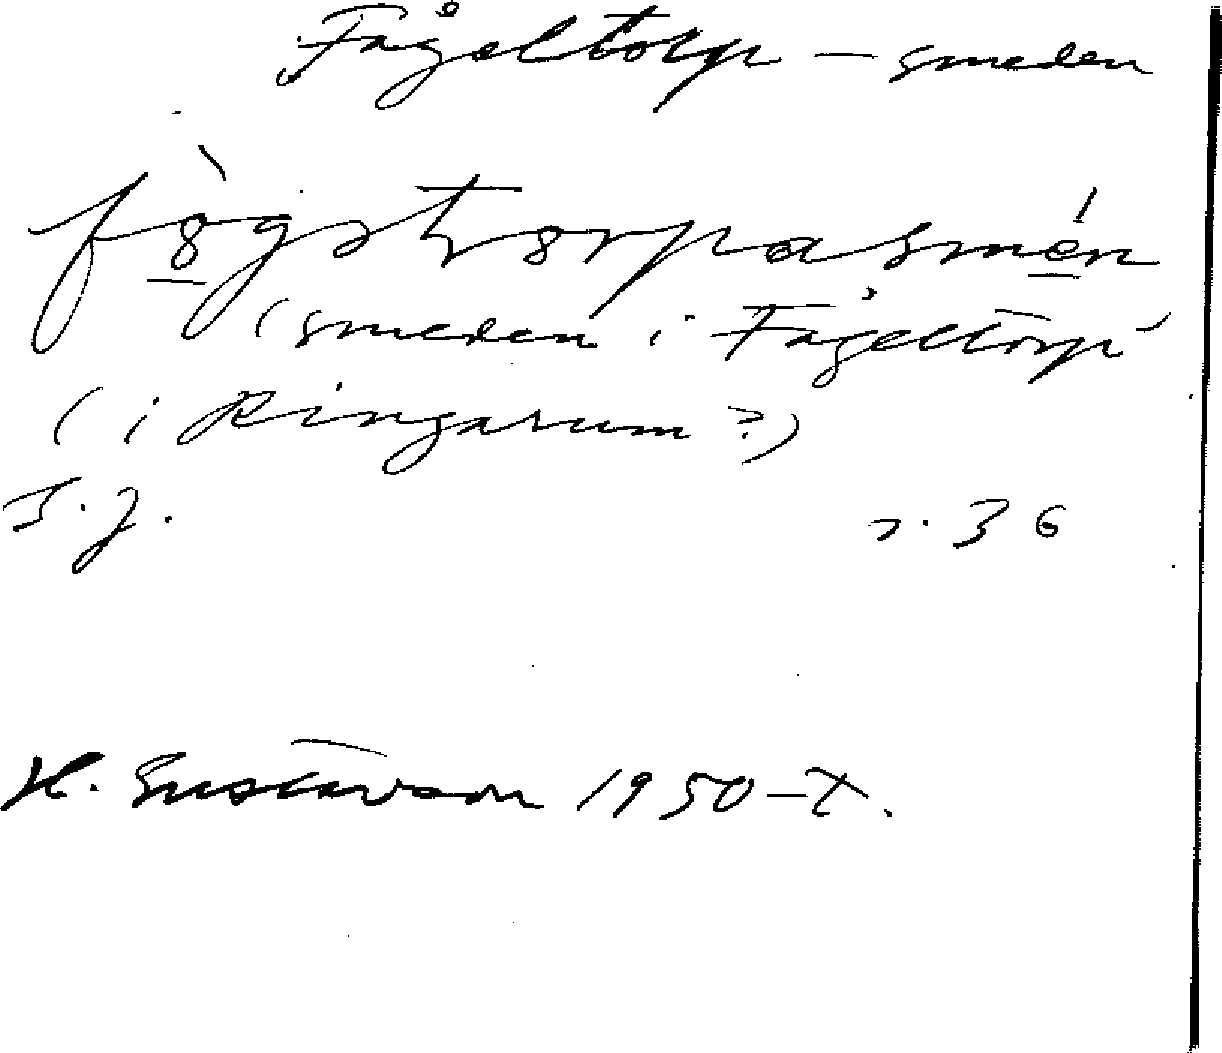 Fågeltorp – smeden
fògstorpasmén
(smeden i Fågeltorp
(i Ringarum?)
S. J. r. 36
H. Gustavson 1950–